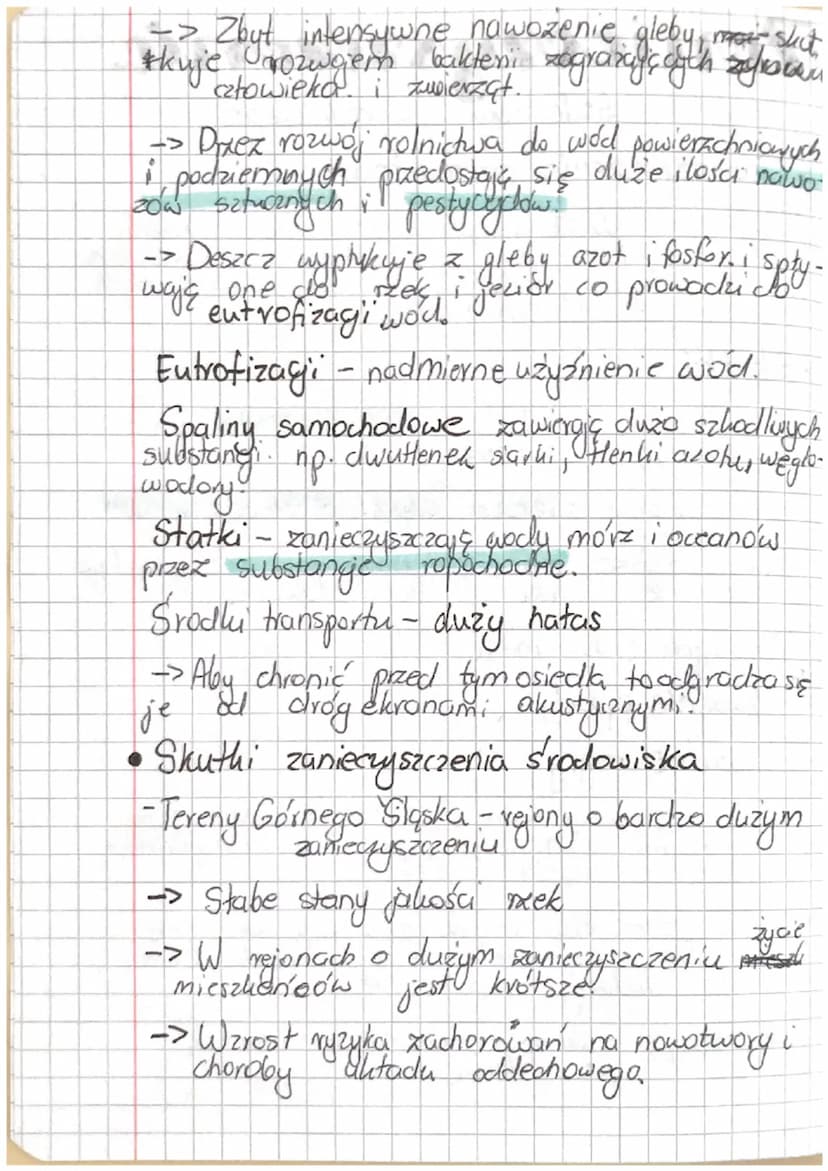 -> Zbyt intensywne nawożenie gleby, skut
kuje rozwojem bakterii zagrażających zdrowiu
człowieka i zwierząt.
-> Przez rozwój rolnictwa do wód powierzchniowych
i podziemnych przedostają się duże ilości nawo-
zów sztucznych i pestycydów.
-> Deszcz wypłukuje z gleby azot i fosfor. i spły-
wają one do rzek i jezior co prowadzi do
eutrofizacji wód.
Eutrofizacji - nadmierne użyźnienie wód.
Spaliny samochodowe zawierają dużo szkodliwych
substancji. np. dwutlenek siarki, tlenki azotu, węglo-
wodory.
Statki - zanieczyszczają wody mórz i oceanów
przez substancje ropochodne.
Środki transportu - duży hałas
-> Aby chronić przed tym osiedla to odgradza się
je od dróg ekranami akustycznymi.
• Skutki zanieczyszczenia środowiska
- Tereny Górnego Śląska - rejony o bardzo dużym
zanieczyszczeniu
-> Słabe stany jakości rzek
-> W rejonach o dużym zanieczyszczeniu życie
mieszkańców jest krótsze.
-> Wzrost ryzyka zachorowań na nowotwory i
choroby układu oddechowego.